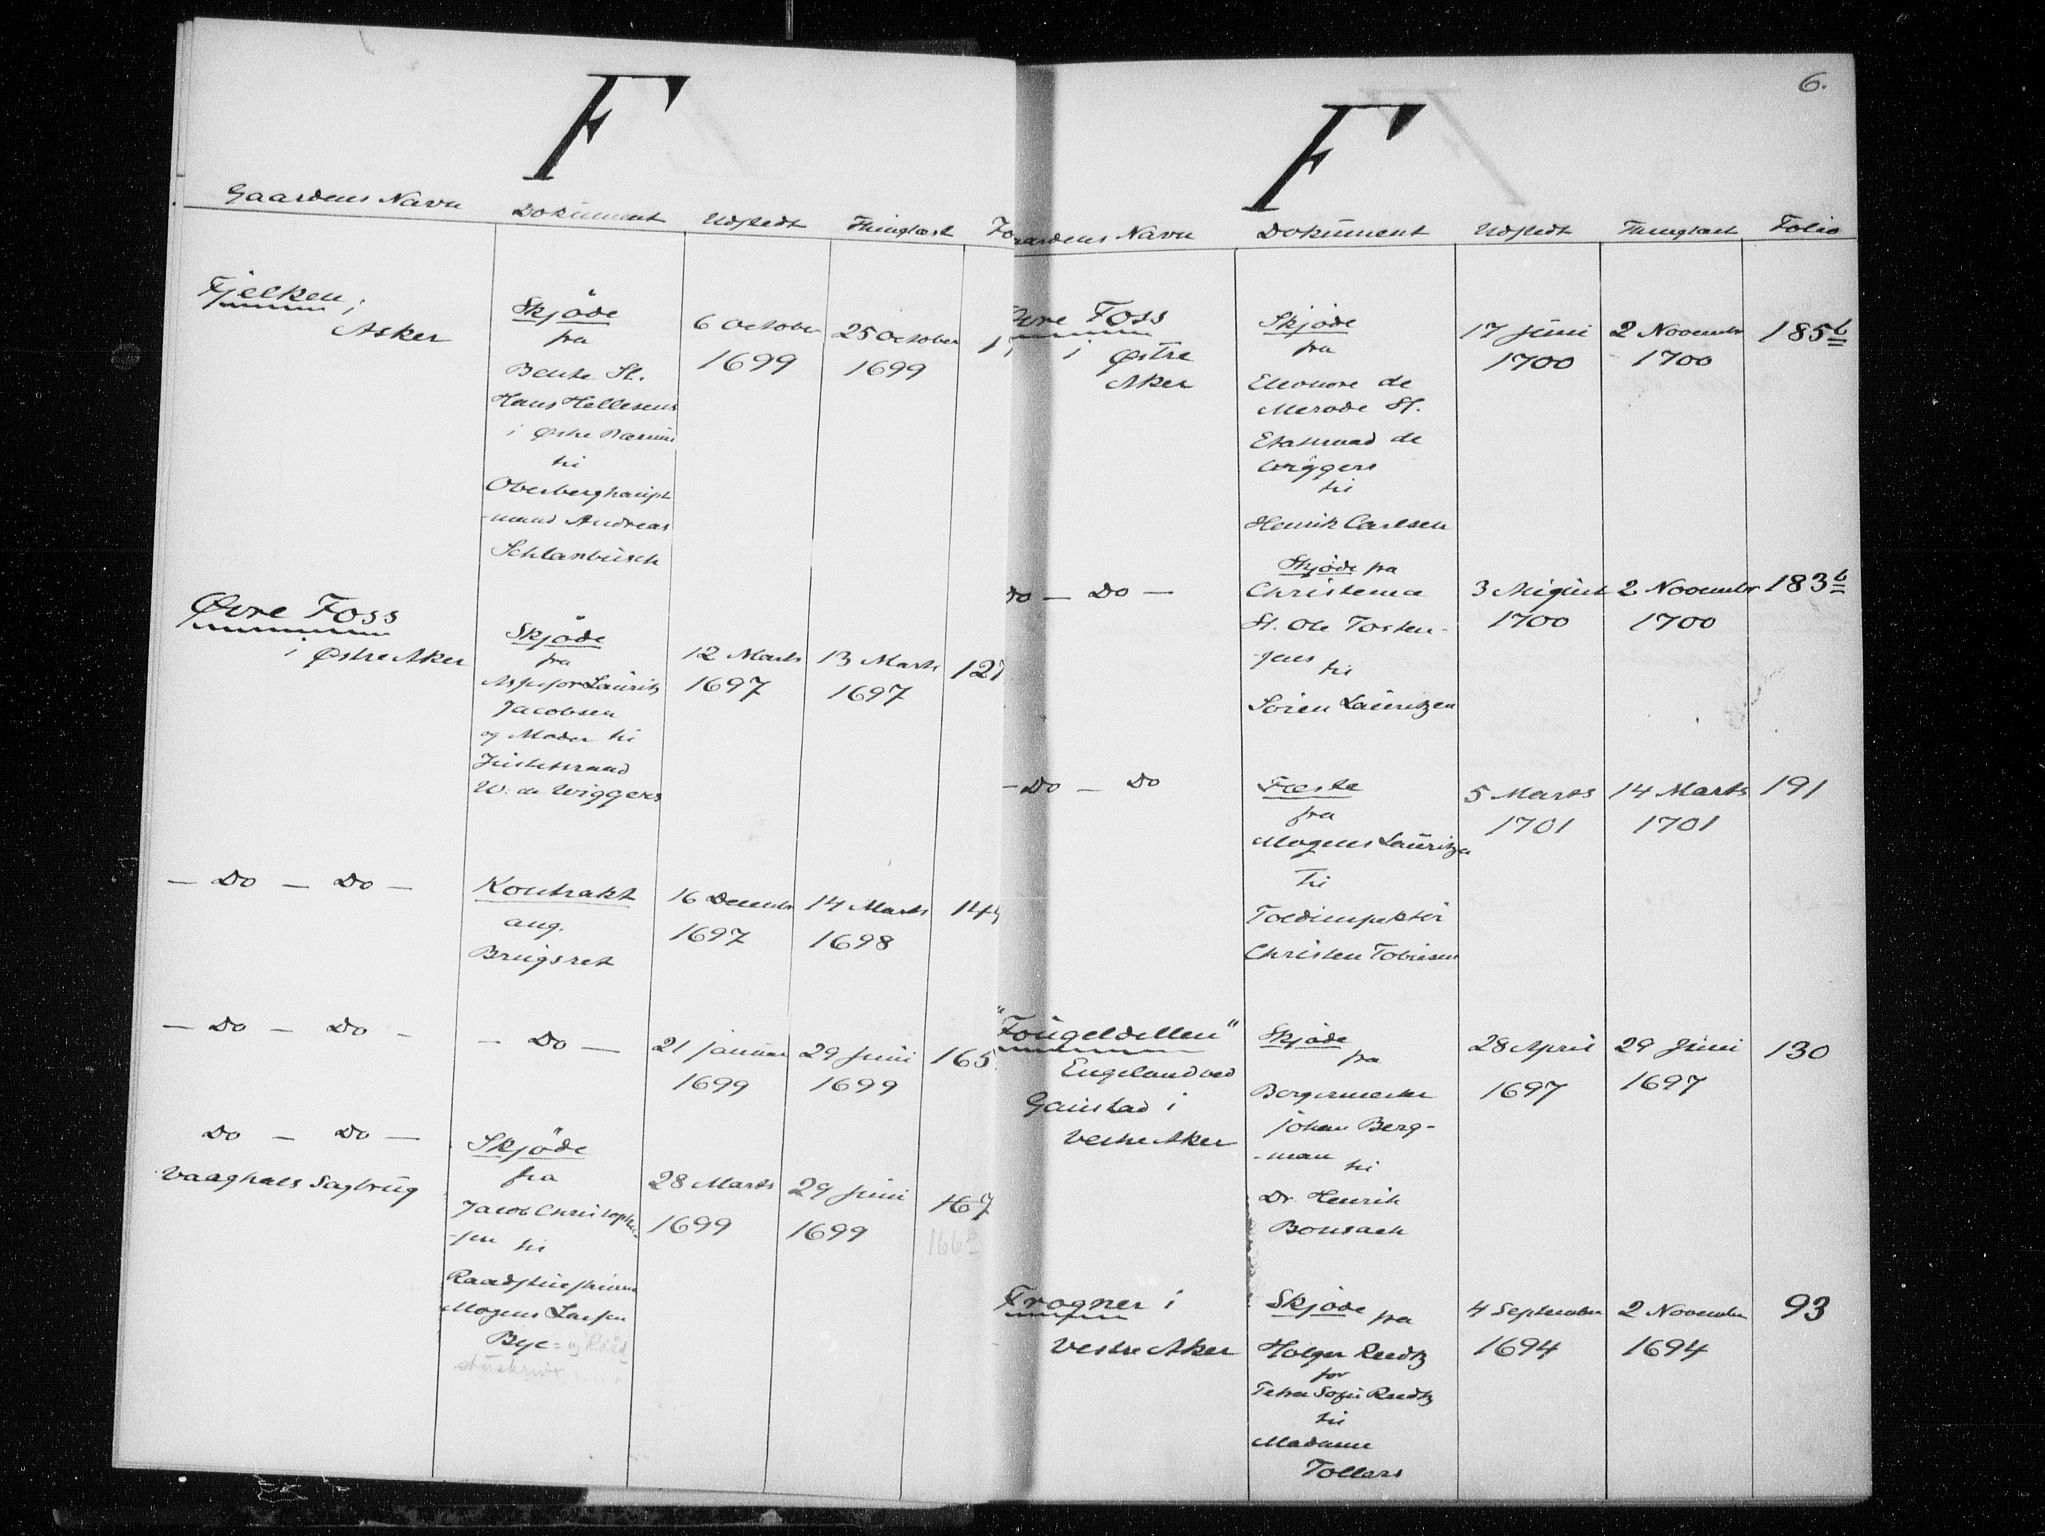 F
Gaardens Navn Dokument Udstedt Thinglæst Fo
Fjelken i
Asker
Skjöde
fra
Bente Sl.
Hans Hellesens
i Østre Bærum
til
Oberberghaupt
-mand Andreas
Schlanbusch
6 October
1699
25 October
1699
Øvre Foss
i Østre Aker
Skjöde
fra
Assessor Lauritz
Jacobsen
og Moder til
Justitsraad
W. de Wiggers
12 Marts
1697
13 Marts
1697
127
— Do — Do —
Kontrakt
ang.
Brugsret
16 Decembr
1697
14 Marts
1698
144
— Do — Do —
— Do —
21 januar
1699
29 Juni
1699
165
Do — Do —
Vaaghals Sagbrug
Skjöde
fra
Jacob Christophe
-sen til
Raadstueskriver
Mogens Larsen
Bye = og Raad
stueskriver
28 Marts
1699
29 Juni
1699
167
166 b
6.
F
aardens Navn Dokument Udstedt Thinglæst Folio
Øvre Foss
i Østre
Aker
Skjöde
fra
Eleonore de
Merode Sl.
Etatsraad de
Wiggers
til
Henrik Carlsen
17 Juni
1700
2 Novembr
1700
185 b
Do — Do —
Skjöde fra
Christense
Sl. Ole Tosten-
-sens til
Sören Lauritzen
3 August
1700
2 Novembr
1700
183 b
— Do — Do
Fæste
fra
Mogens Lauritzen
Til
Toldinspektör
Christen Tobiesen
5 Marts
1701
14 Marts
1701
191
"Fougeldellen"
Engeland ved
Gaustad i
Vestre Aker
Skjöde
fra
Borgermester
Johan Berg-
-man til
Dr. Henrik
Bonsach
28 April
1697
29 Juni
1697
130
Frogner i
Vestre Aker
Skjöde fra
Holger Reedtz
for
Tetra Sofie Reedtz
til
Madame
Tollers
4 September
1694
2 November
1694
93